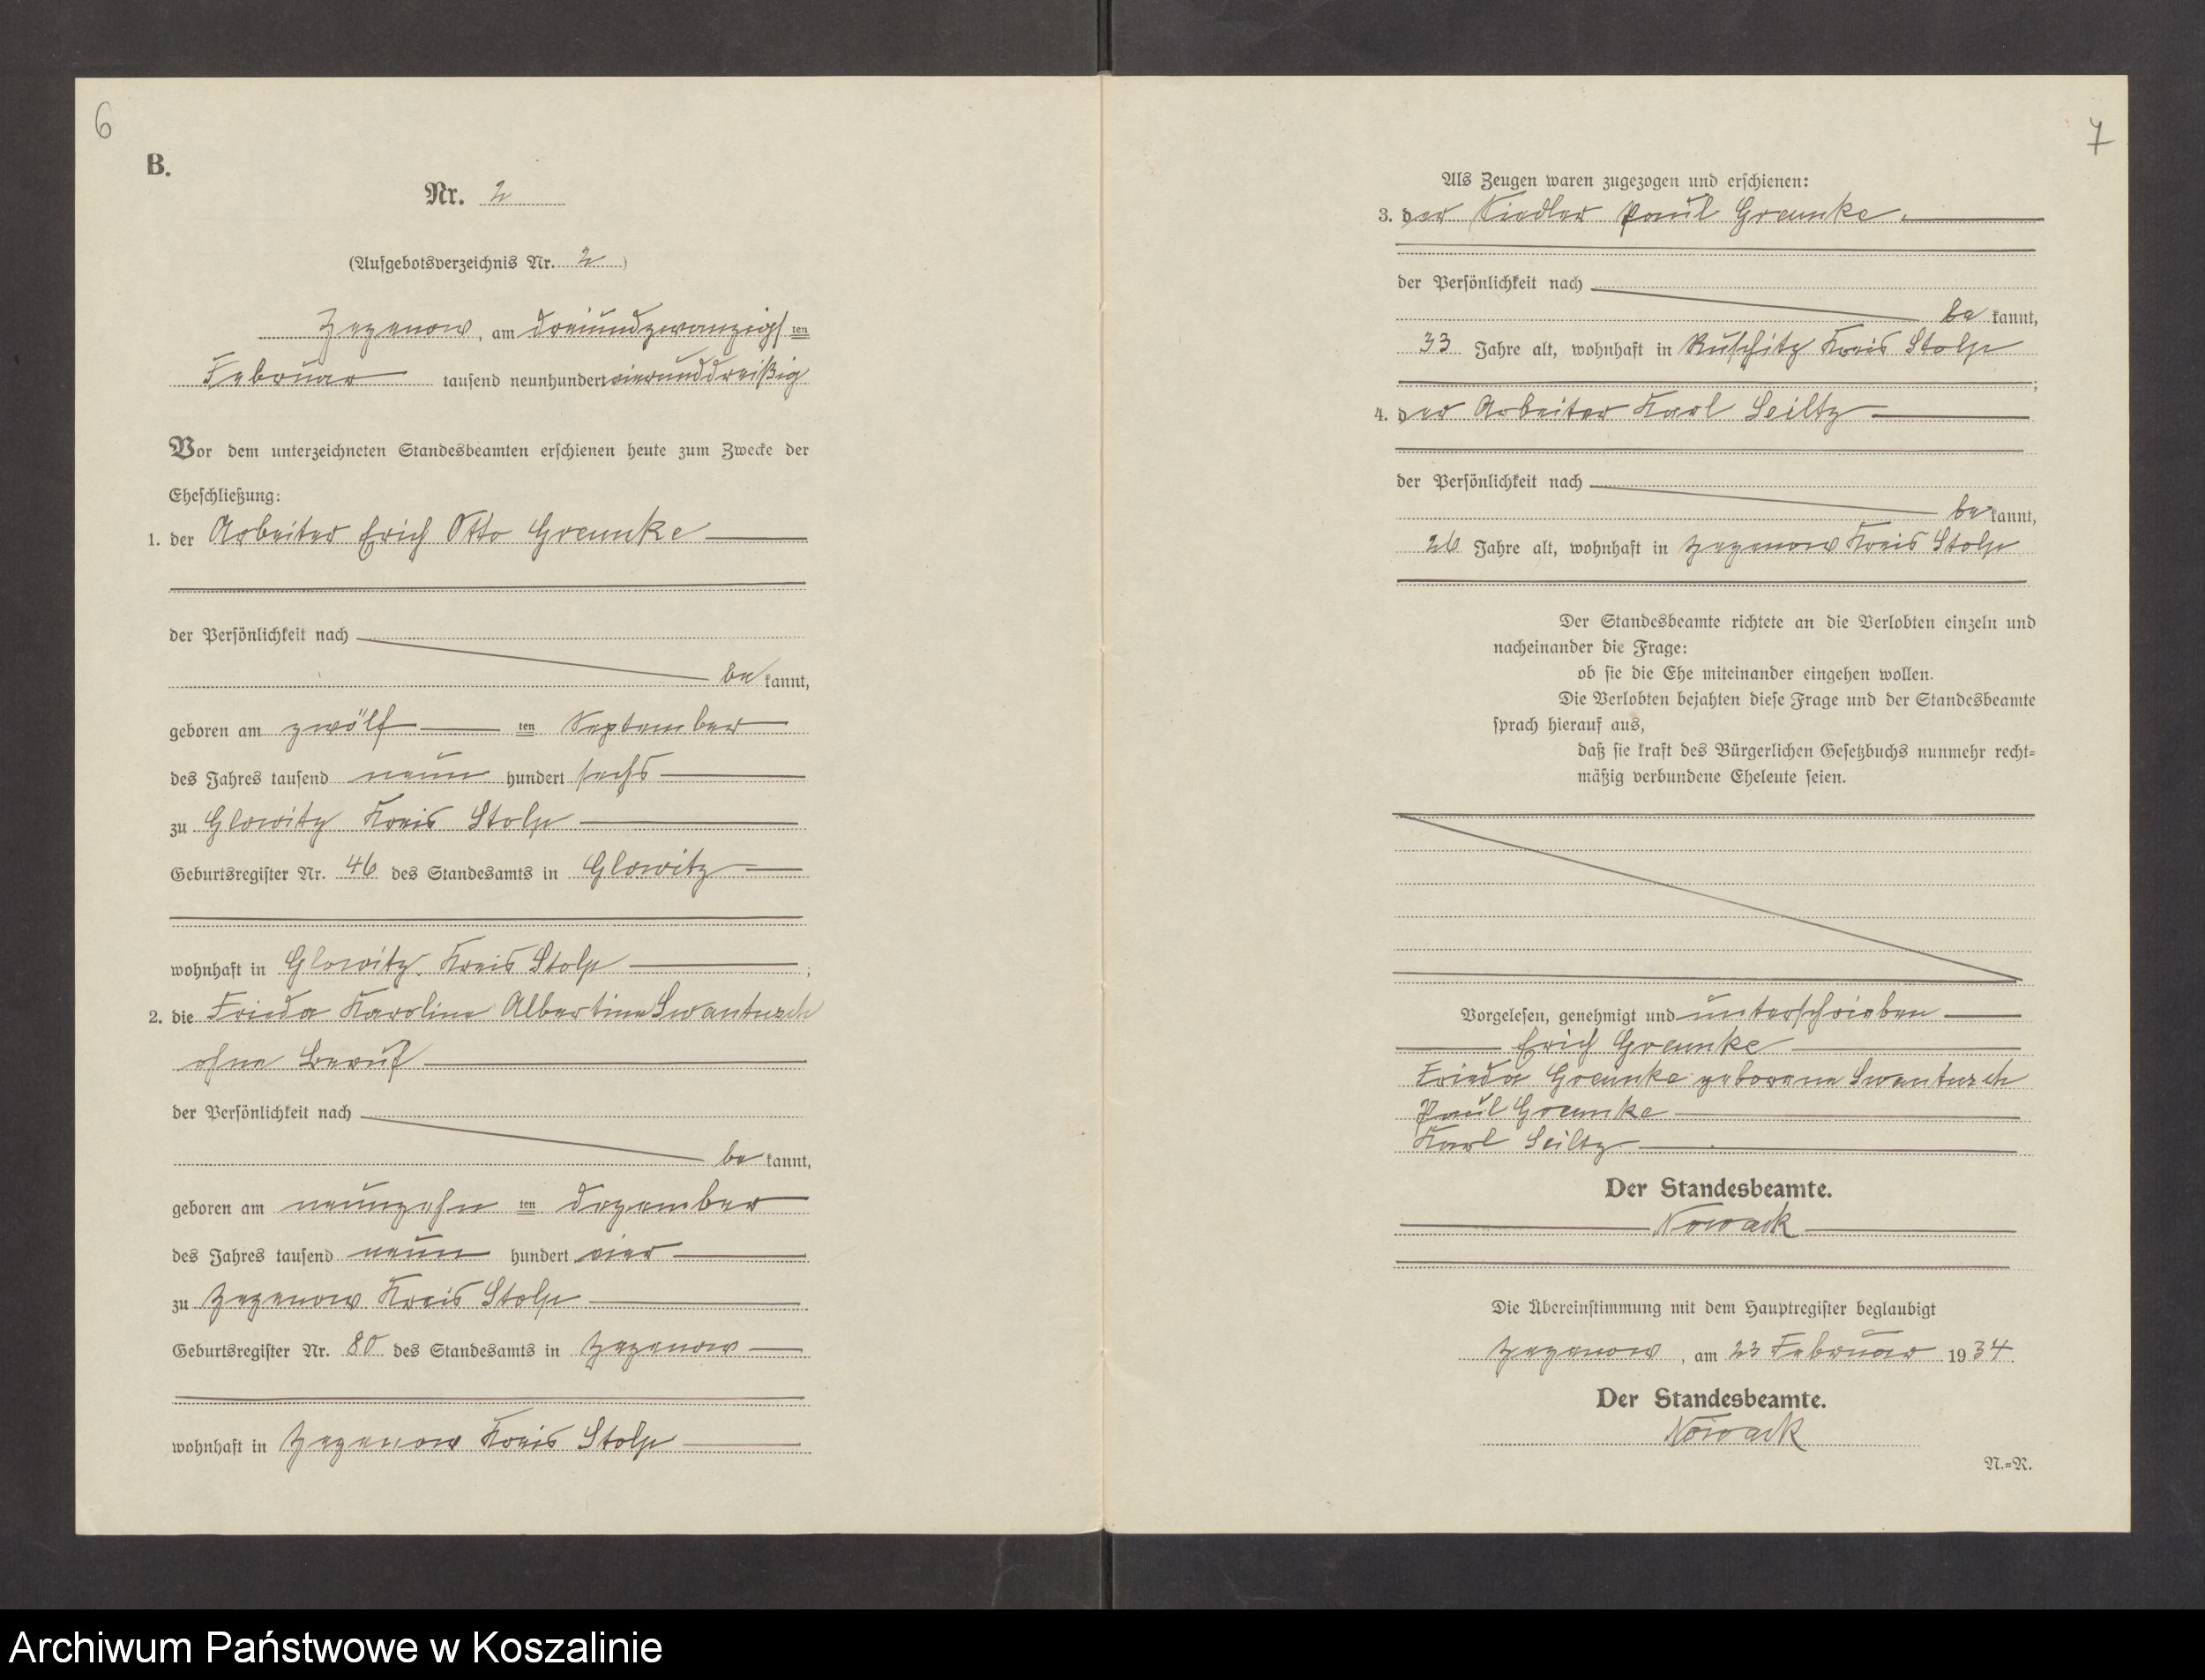 6
B.
Nr. 2
(Aufgebotsverzeichnis Nr. 2)
Zezenow, am dreiundzwanzigsten
Februar tausend neunhundert vierunddreißig
Vor dem unterzeichneten Standesbeamten erschienen heute zum Zwecke der
Eheschließung:
1. der Arbeiter Erich Otto Greunke
der Persönlichkeit nach
bekannt,
geboren am zwölften September
des Jahres tausend neun hundert sechs
zu Glowitz Kreis Stolp
Geburtsregister Nr. 46 des Standesamts in Glowitz
wohnhaft in Glowitz, Kreis Stolp;
2. die Frieda Karoline Albertine Swantusch
ohne Beruf
der Persönlichkeit nach
bekannt,
geboren am neunzehnten Dezember
des Jahres tausend neun hundert vier
zu Zezenow Kreis Stolp
Geburtsregister Nr. 80 des Standesamts in Zezenow
wohnhaft in Zezenow Kreis Stolp
7
Als Zeugen waren zugezogen und erschienen:
3. der Siedler Paul Greunke.
der Persönlichkeit nach
bekannt,
33 Jahre alt, wohnhaft in Ruschitz Kreis Stolp
;
4. der Arbeiter Karl Seiltz
der Persönlichkeit nach
bekannt,
26 Jahre alt, wohnhaft in Zezenow Kreis Stolp
Der Standesbeamte richtete an die Verlobten einzeln und
nacheinander die Frage:
ob sie die Ehe miteinander eingehen wollen.
Die Verlobten bejahten diese Frage und der Standesbeamte
sprach hierauf aus,
daß sie kraft des Bürgerlichen Gesetzbuchs nunmehr recht-
mäßig verbundene Eheleute seien.
Vorgelesen, genehmigt und unterschrieben
Erich Greunke
Frieda Greunke geborene Swantusch
Paul Greunke
Karl Seiltz
Der Standesbeamte.
Nowack
Die Übereinstimmung mit dem Hauptregister beglaubigt
Zezenow, am 23 Februar 1934.
Der Standesbeamte.
Nowack
N.-R.
Archiwum Państwowe w Koszalinie